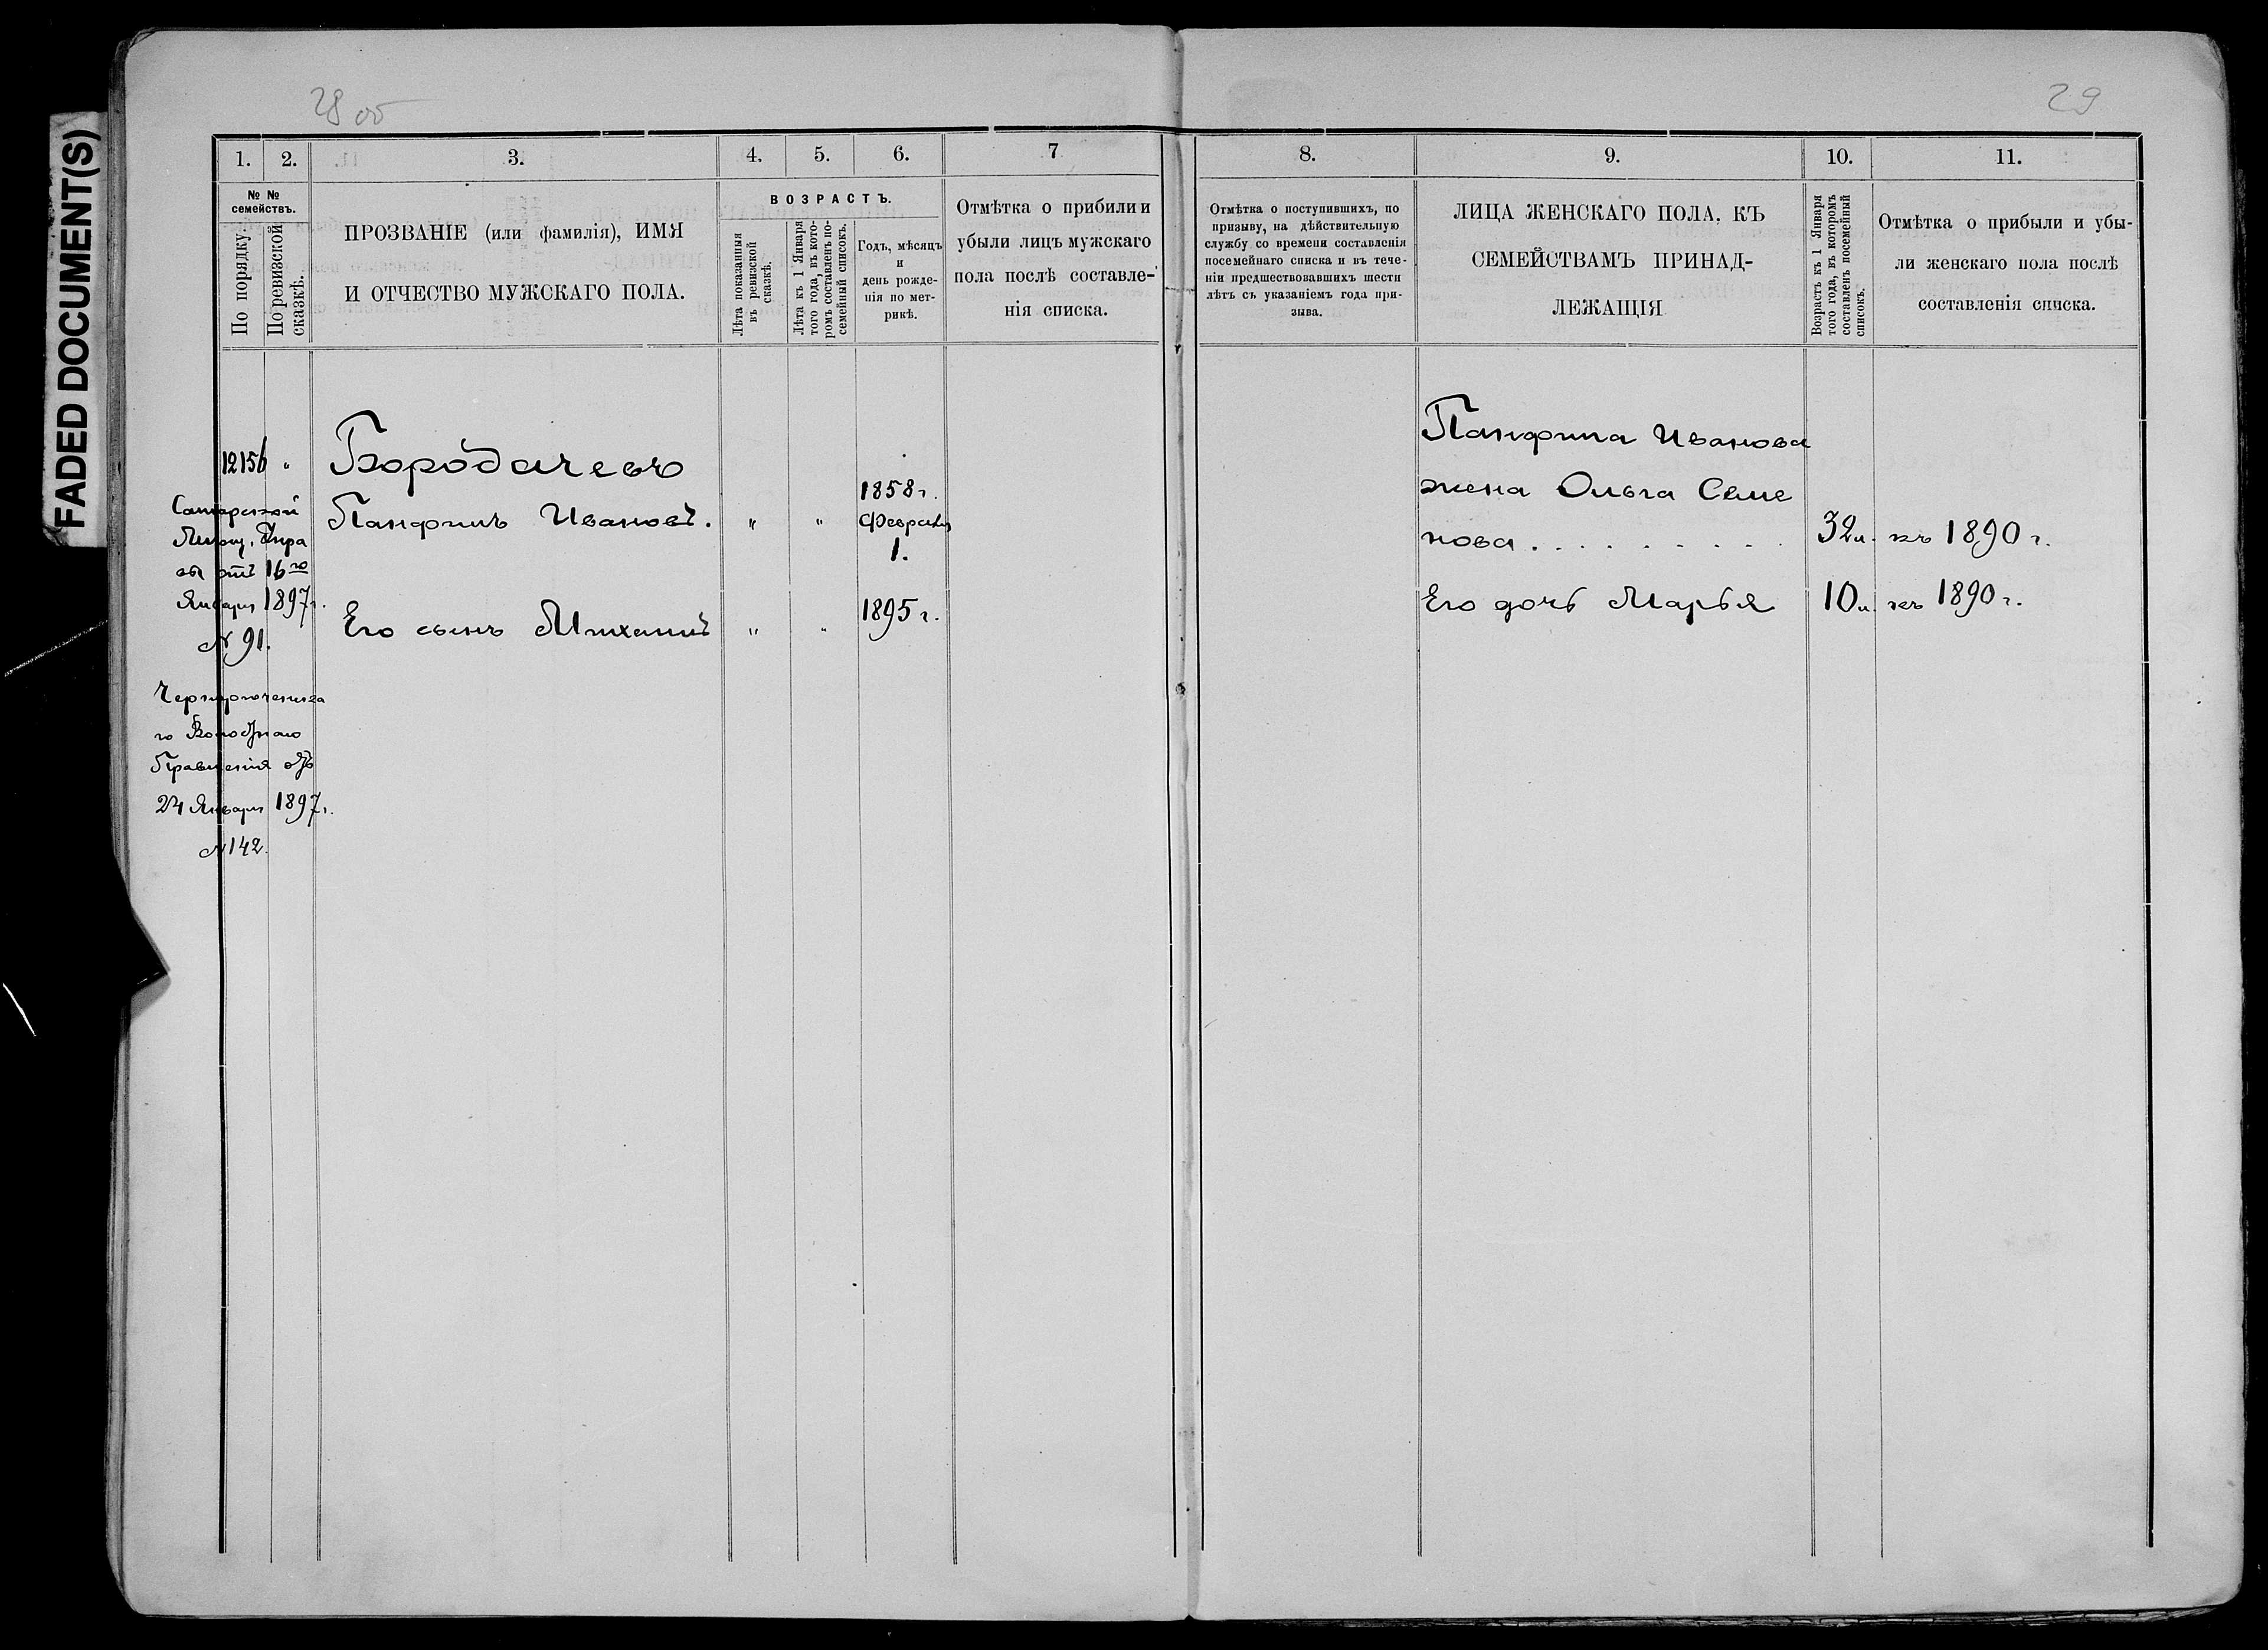 FADED DOCUMENT(S)
28 об
29
1.
2.
3.
4.
5.
6.
7
8.
9.
10.
11.
№ №
семействъ.
По порядку.
По ревизской
сказкѣ.
ПРОЗВАНІЕ (или фамилія), ИМЯ
И ОТЧЕСТВО МУЖСКАГО ПОЛА.
ВОЗРАСТЪ.
Лѣта показанныя
въ ревизской
сказкѣ.
Лѣта къ 1 Января
того года, въ кото-
ромъ составленъ по-
семейный списокъ.
Годъ, мѣсяцъ
и
день рожде-
нія по мет-
рикѣ.
Отмѣтка о прибили и
убыли лицъ мужскаго
пола послѣ составле-
нія списка.
Отмѣтка о поступившихъ, по
призыву, на дѣйствительную
службу со времени составленія
посемейнаго списка и въ тече-
ніи предшествовавшихъ шести
лѣтъ съ указаніемъ года при-
зыва.
ЛИЦА ЖЕНСКАГО ПОЛА, КЪ
СЕМЕЙСТВАМЪ ПРИНАД-
ЛЕЖАЩІЯ
Возрастъ къ 1 Января
того года, въ которомъ
составленъ посемейный
списокъ.
Отмѣтка о прибыли и убы-
ли женскаго пола послѣ
составленія списка.
12156 "
Самарской
Мѣщ. Упра
вы отъ 16го
Января 1897г.
№ 91.
Бородачевъ
Панфилъ Ивановъ. " "
1858г.
Февраля
1.
Его сынъ Михаилъ " " 1895г.
го Волостнаго
Правленія отъ
24 Января 1897г.
№ 142.
Панфила Иванова
жена Ольга Семе
нова . . . . . . . . . 32л. къ 1890г.
Его дочь Марья 10л. къ 1890г.